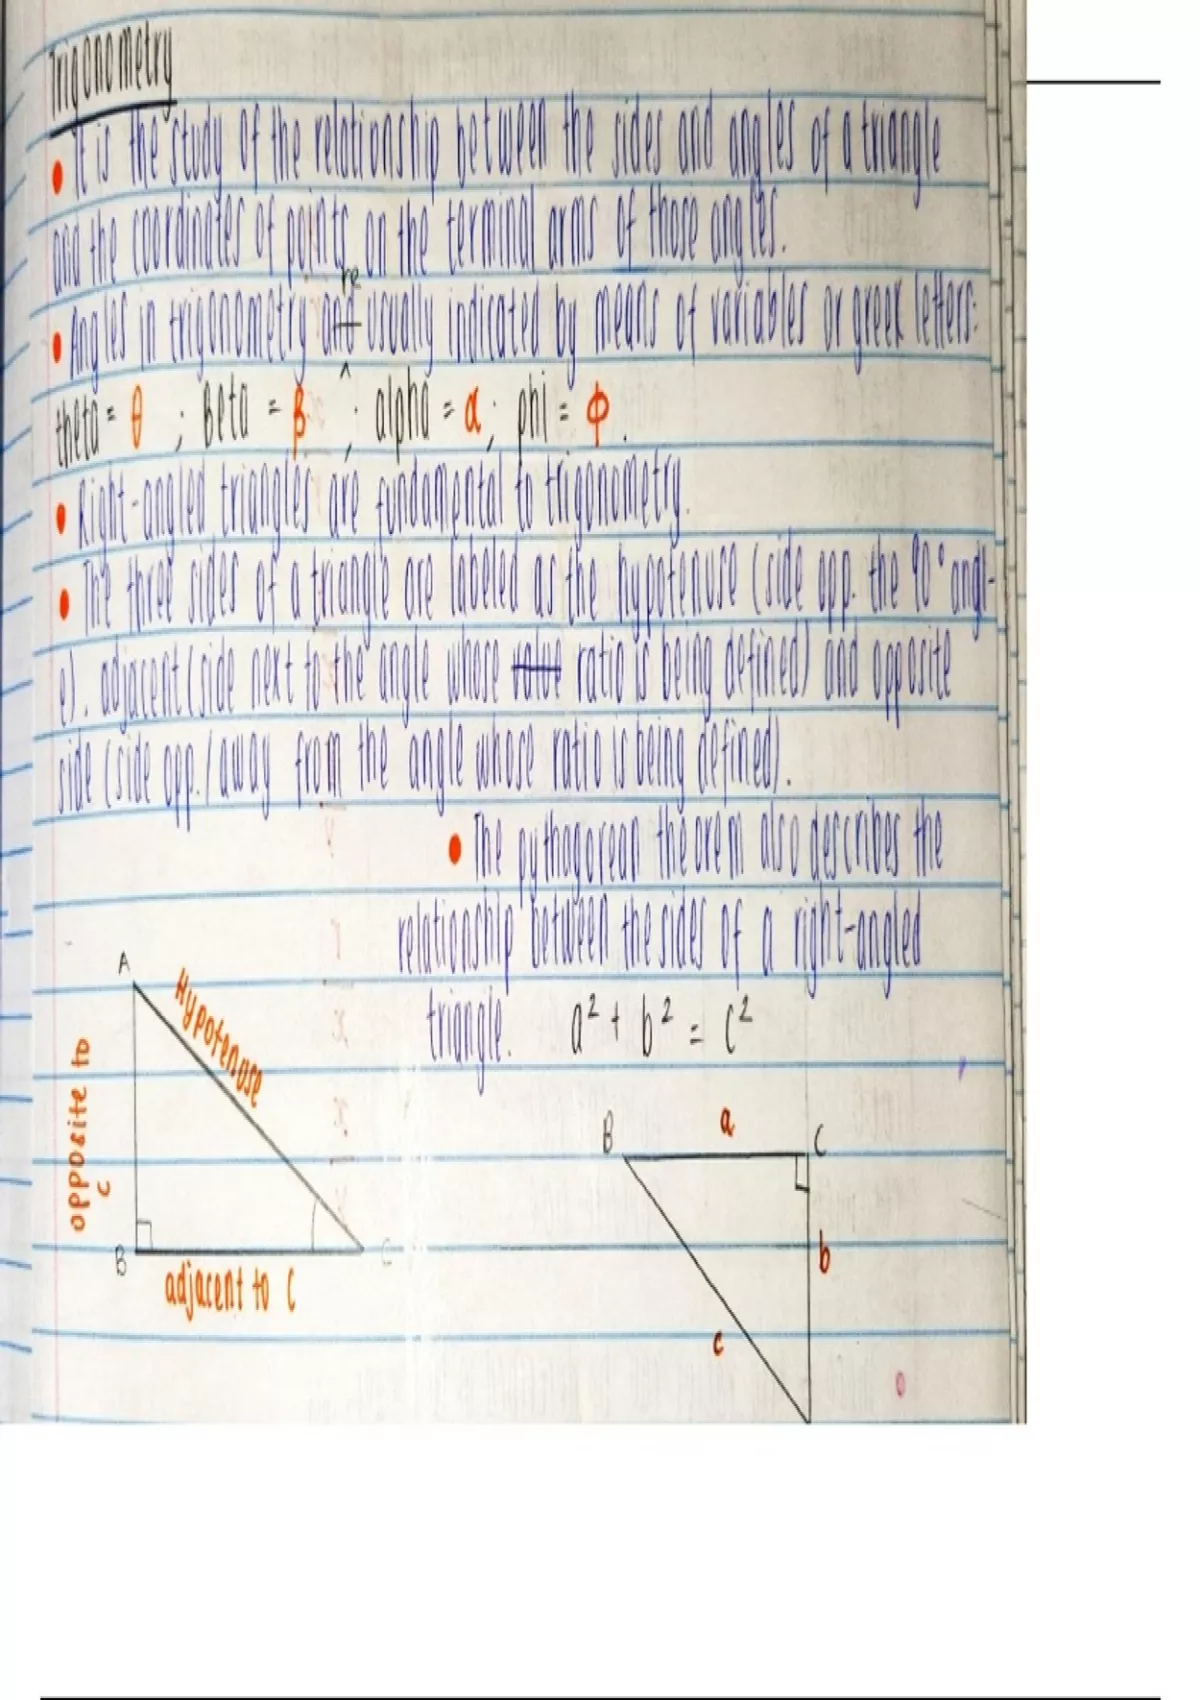 Trigonometry
• It is the study of the relationship between the sides and angles of a triangle
and the coordinates of points on the terminal arms of those angles.
re
• Angles in trigonometry and usually indicated by means of variables or greek letters:
theta = θ ; Beta = β ; alpha = α ; phi = Φ .
• Right-angled triangles are fundamental to trigonometry.
• The three sides of a triangle are labeled as the hypotenuse (side opp. the 90° angl-
e). adjacent (side next to the angle whose value ratio is being defined) and opposite
side (side opp. / away from the angle whose ratio is being defined).
• The pythagorean theorem also describes the
relationship between the sides of a right-angled
triangle. a² + b² = c²
A
Hypotenuse
opposite to
C
B
C
adjacent to C
B
a
C
b
c